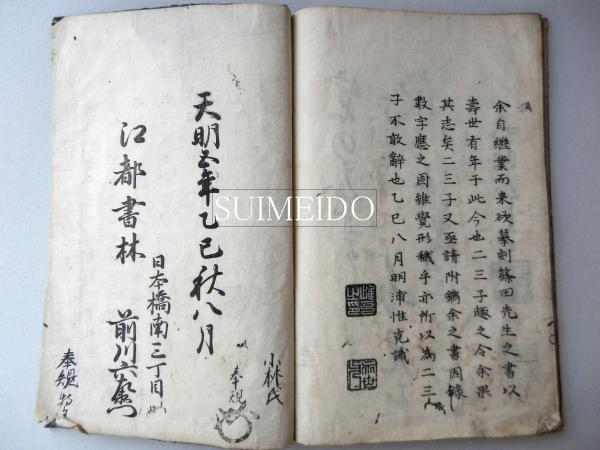 余自継業而来欲摹刻篠田先生之書以
壽世有年于此今也二三子趣之令余果
其志矣二三子又亟請附鐫余之書因録
數字應之固雖覺形穢乎亦所以為二三
子不敢辭也乙巳八月明浦惟克識
天明五年乙巳秋八月
日本橋南三丁目
江都書林 前川六左衛門
小林氏
SUIMEIDO